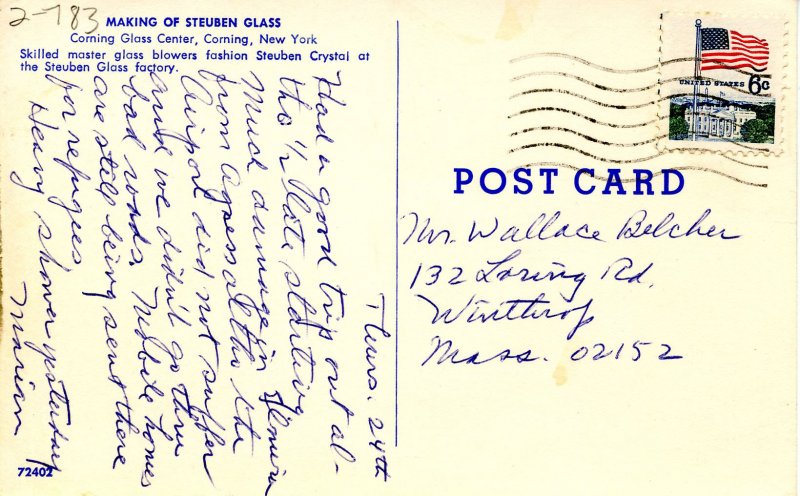 2-783
MAKING OF STEUBEN GLASS
Corning Glass Center, Corning, New York
Skilled master glass blowers fashion Steuben Crystal at
the Steuben Glass factory.
Thurs. 24th
Had a good trip out al-
tho ½ late starting
Much damage in Elmira
from Agnes altho the
Airport did not suffer
and we didn't go thru
bad roads. Mobile homes
are still being sent there
for refugees.
Heavy shower yesterday
Marian
72402
UNITED STATES 6c
POST CARD
Mr. Wallace Belcher
132 Loring Rd.
Winthrop
Mass. 02152